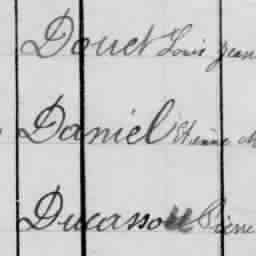 Douet Louis Jean
Daniel Etienne
Ducasso Pierre